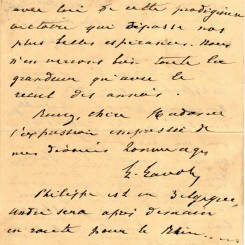 avec loi de cette prodigieuse
victoire qui dépasse nos
plus belles espérances. Nous
n'en verrons bien toute la
grandeur qu'avec le
recul des années.
Recevez, chère Madame
l'expression empressée de
mes dévoués hommages
E. Lavoly
Philippe est en Belgique,
André sera après demain
en route pour le Rhin...